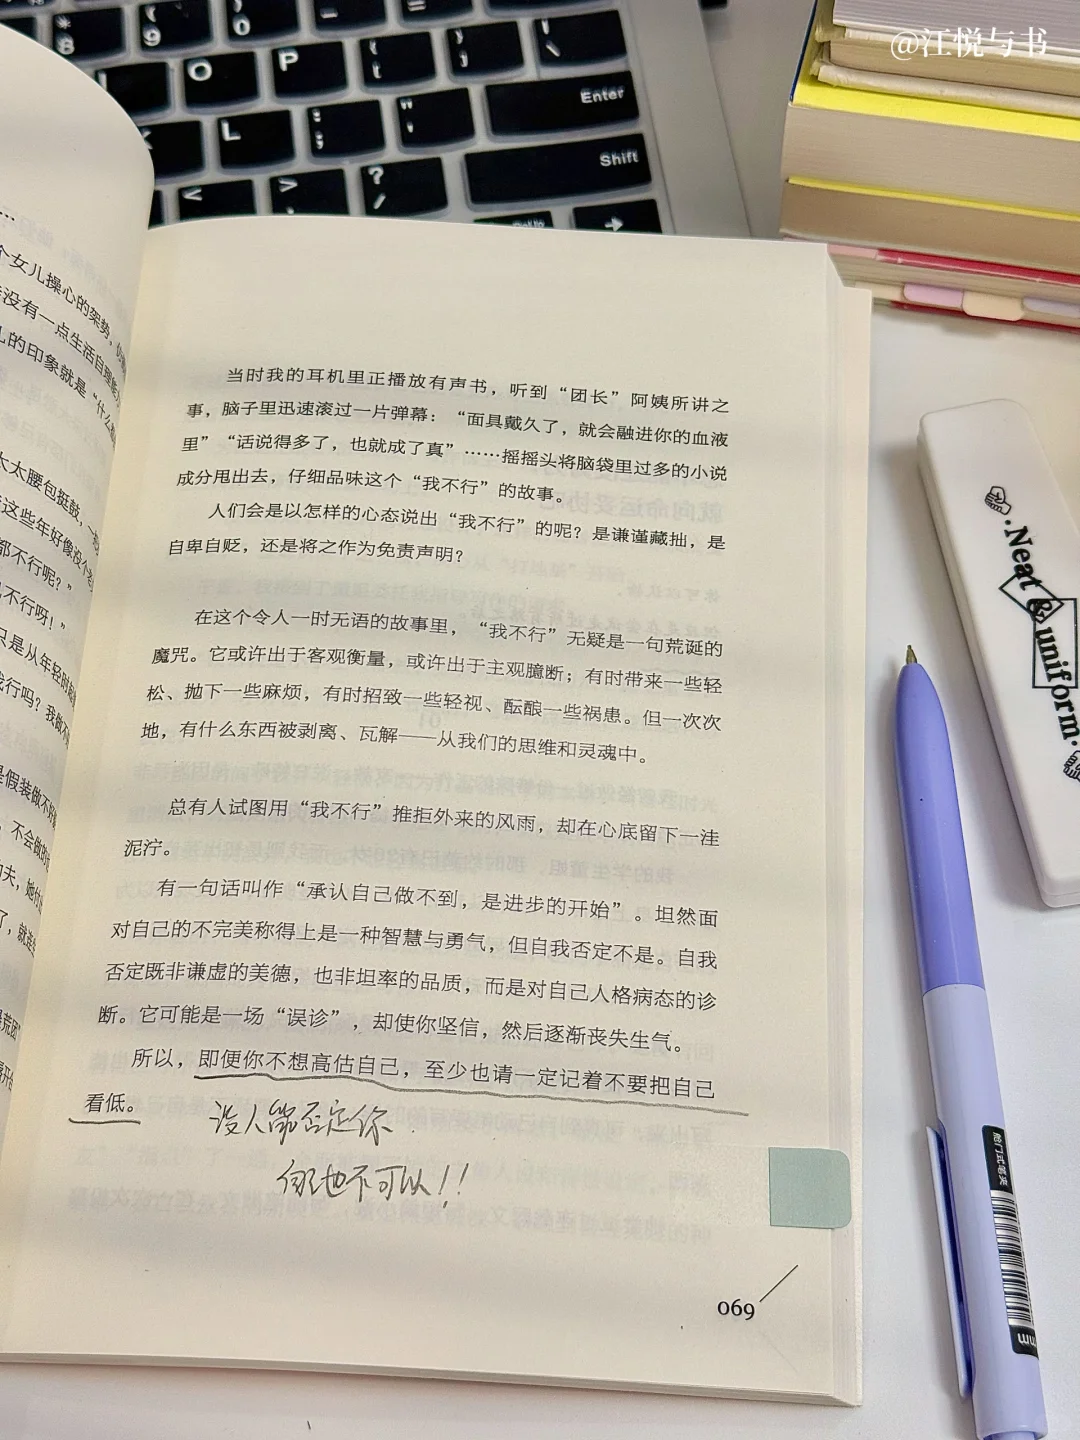 @江悦与书
8
9
0
O
P
L
Enter
Shift
个女儿操心的架势，
没有一点生活自理能
儿的印象就是“什么
太太腰包挺鼓，
这些年好像没个
都不行呢？”
不行呀！”
只是从年轻时
我行吗？我做不
是假装做不好
，不会做的
夫，她
了，就
当时我的耳机里正播放有声书，听到“团长”阿姨所讲之
事，脑子里迅速滚过一片弹幕：“面具戴久了，就会融进你的血液
里”“话说得多了，也就成了真”……摇摇头将脑袋里过多的小说
成分甩出去，仔细品味这个“我不行”的故事。
人们会是以怎样的心态说出“我不行”的呢？是谦谨藏拙，是
自卑自贬，还是将之作为免责声明？
在这个令人一时无语的故事里，“我不行”无疑是一句荒诞的
魔咒。它或许出于客观衡量，或许出于主观臆断；有时带来一些轻
松、抛下一些麻烦，有时招致一些轻视、酝酿一些祸患。但一次次
地，有什么东西被剥离、瓦解——从我们的思维和灵魂中。
总有人试图用“我不行”推拒外来的风雨，却在心底留下一洼
泥泞。
有一句话叫作“承认自己做不到，是进步的开始”。坦然面
对自己的不完美称得上是一种智慧与勇气，但自我否定不是。自我
否定既非谦虚的美德，也非坦率的品质，而是对自己人格病态的诊
断。它可能是一场“误诊”，却使你坚信，然后逐渐丧失生气。
所以，即便你不想高估自己，至少也请一定记着不要把自己
看低。
没人能否定你
你也不可以！！
069
Neat & uniform.